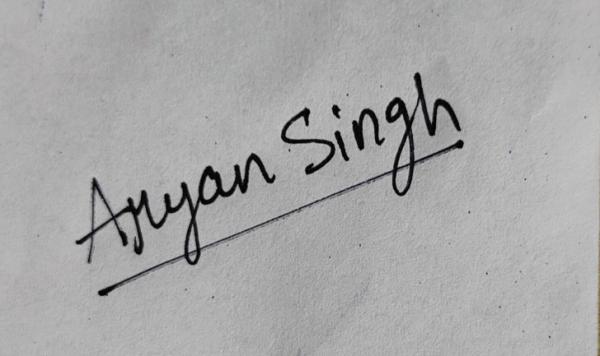 Aryan Singh